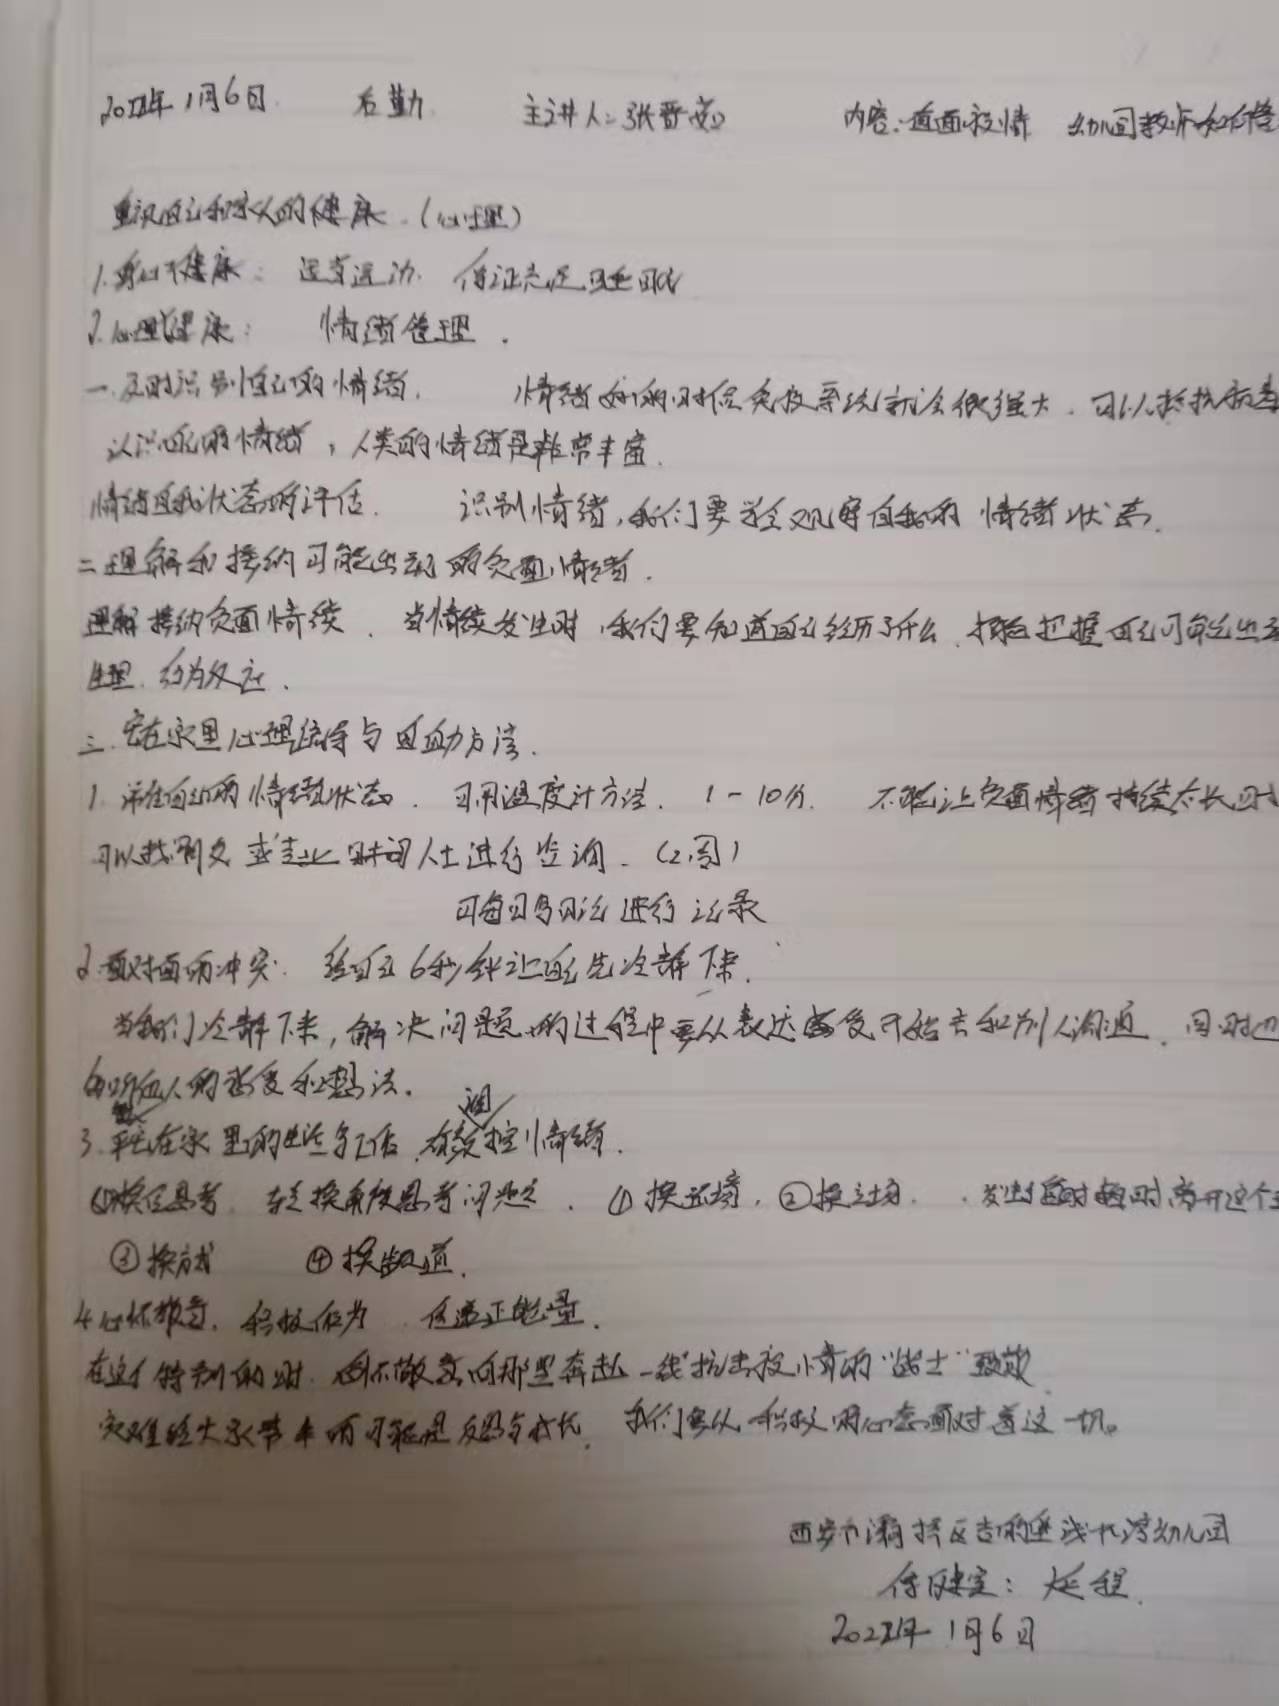 2022年1月6日 后勤 主讲人:张晋 内容:直面疫情 幼儿园教师如何
重视自己和家人的健康.(心理)
1.身心健康: 适当运动. 保证充足睡眠
2.心理健康: 情绪管理.
一.及时识别自己的情绪. 情绪好的时候免疫系统就会很强大.可以抵抗病毒
认识自己的情绪,人类的情绪是非常丰富.
情绪自我状态的评估. 识别情绪,我们要学会观察自我的情绪状态.
二理解和接纳可能出现的负面情绪.
理解接纳负面情绪. 当情绪发生时,我们要知道自己经历了什么.把握自己可能出现
生理.行为反应.
三.宅在家里心理疏导与自助方法.
1.评估自己的情绪状态. 可用温度计方法. 1-10分. 不能让负面情绪持续太长时
可以找朋友或专业人士进行咨询.(2周)
可每日写日记进行记录
2.面对面的冲突. 给自己6秒钟让自己先冷静下来.
当我们冷静下来,解决问题的过程中要从表达感受开始去和别人沟通.同时也
倾听他人的感受和想法.
3.宅在家里的生活与工作,有效调控情绪.
换位思考. 转换角度思考问题. ①换环境.②换立场. 发生 时 离开这个
③换方式 ④换频道.
4.心怀敬意.积极作为.传递正能量.
在这个特别的时.心怀敬意向那些奔赴一线抗击疫情的“战士”致敬
灾难给大家带来的可能是反思与成长. 我们要以积极的心态面对着这一切。
西安市灞桥区 幼儿园
保健室:延程.
2022年1月6日